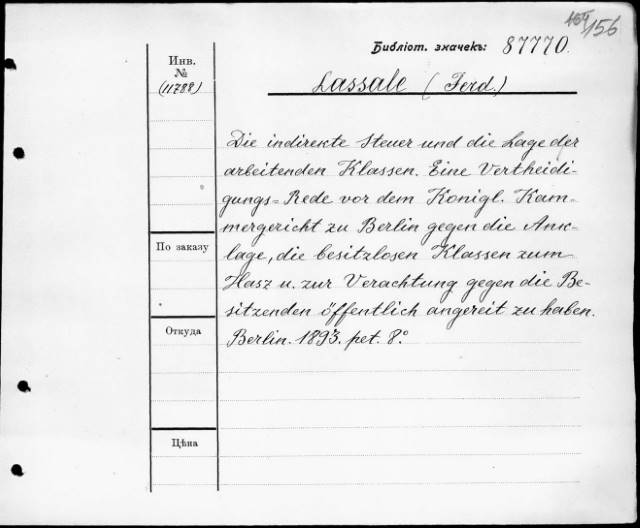 156
Библіот. значекъ: 87770.
Инв.
№
(11788)
Lassale (Ferd.)
Die indirekte Steuer und die Lage der
arbeitenden Klassen. Eine Vertheidi-
gungs=Rede vor dem Konigl. Kam-
mergericht zu Berlin gegen die Ank-
lage, die besitzlosen Klassen zum
Hasz u. zur Verachtung gegen die Be-
sitzenden öffentlich angereit zu haben.
Berlin. 1893. pet. 8.°
По заказу
Откуда
Цѣна